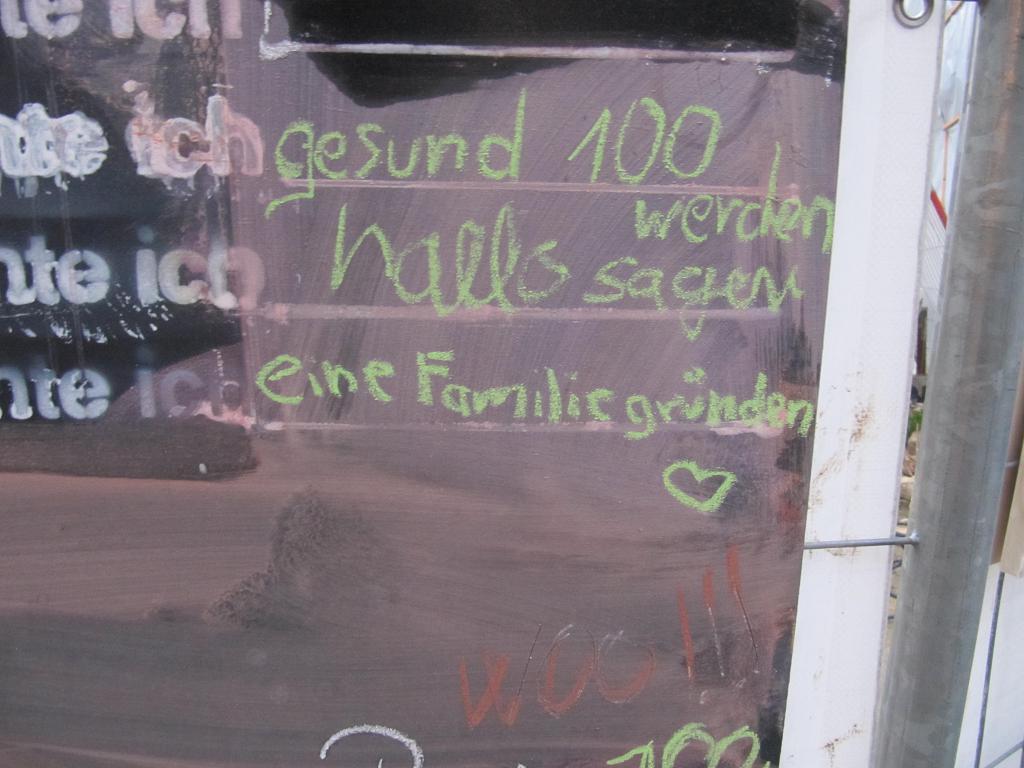 te ich
nte ich gesund 100 werden
nte ich hallo sagen
nte ich eine Familie gründen
woo!!!
100